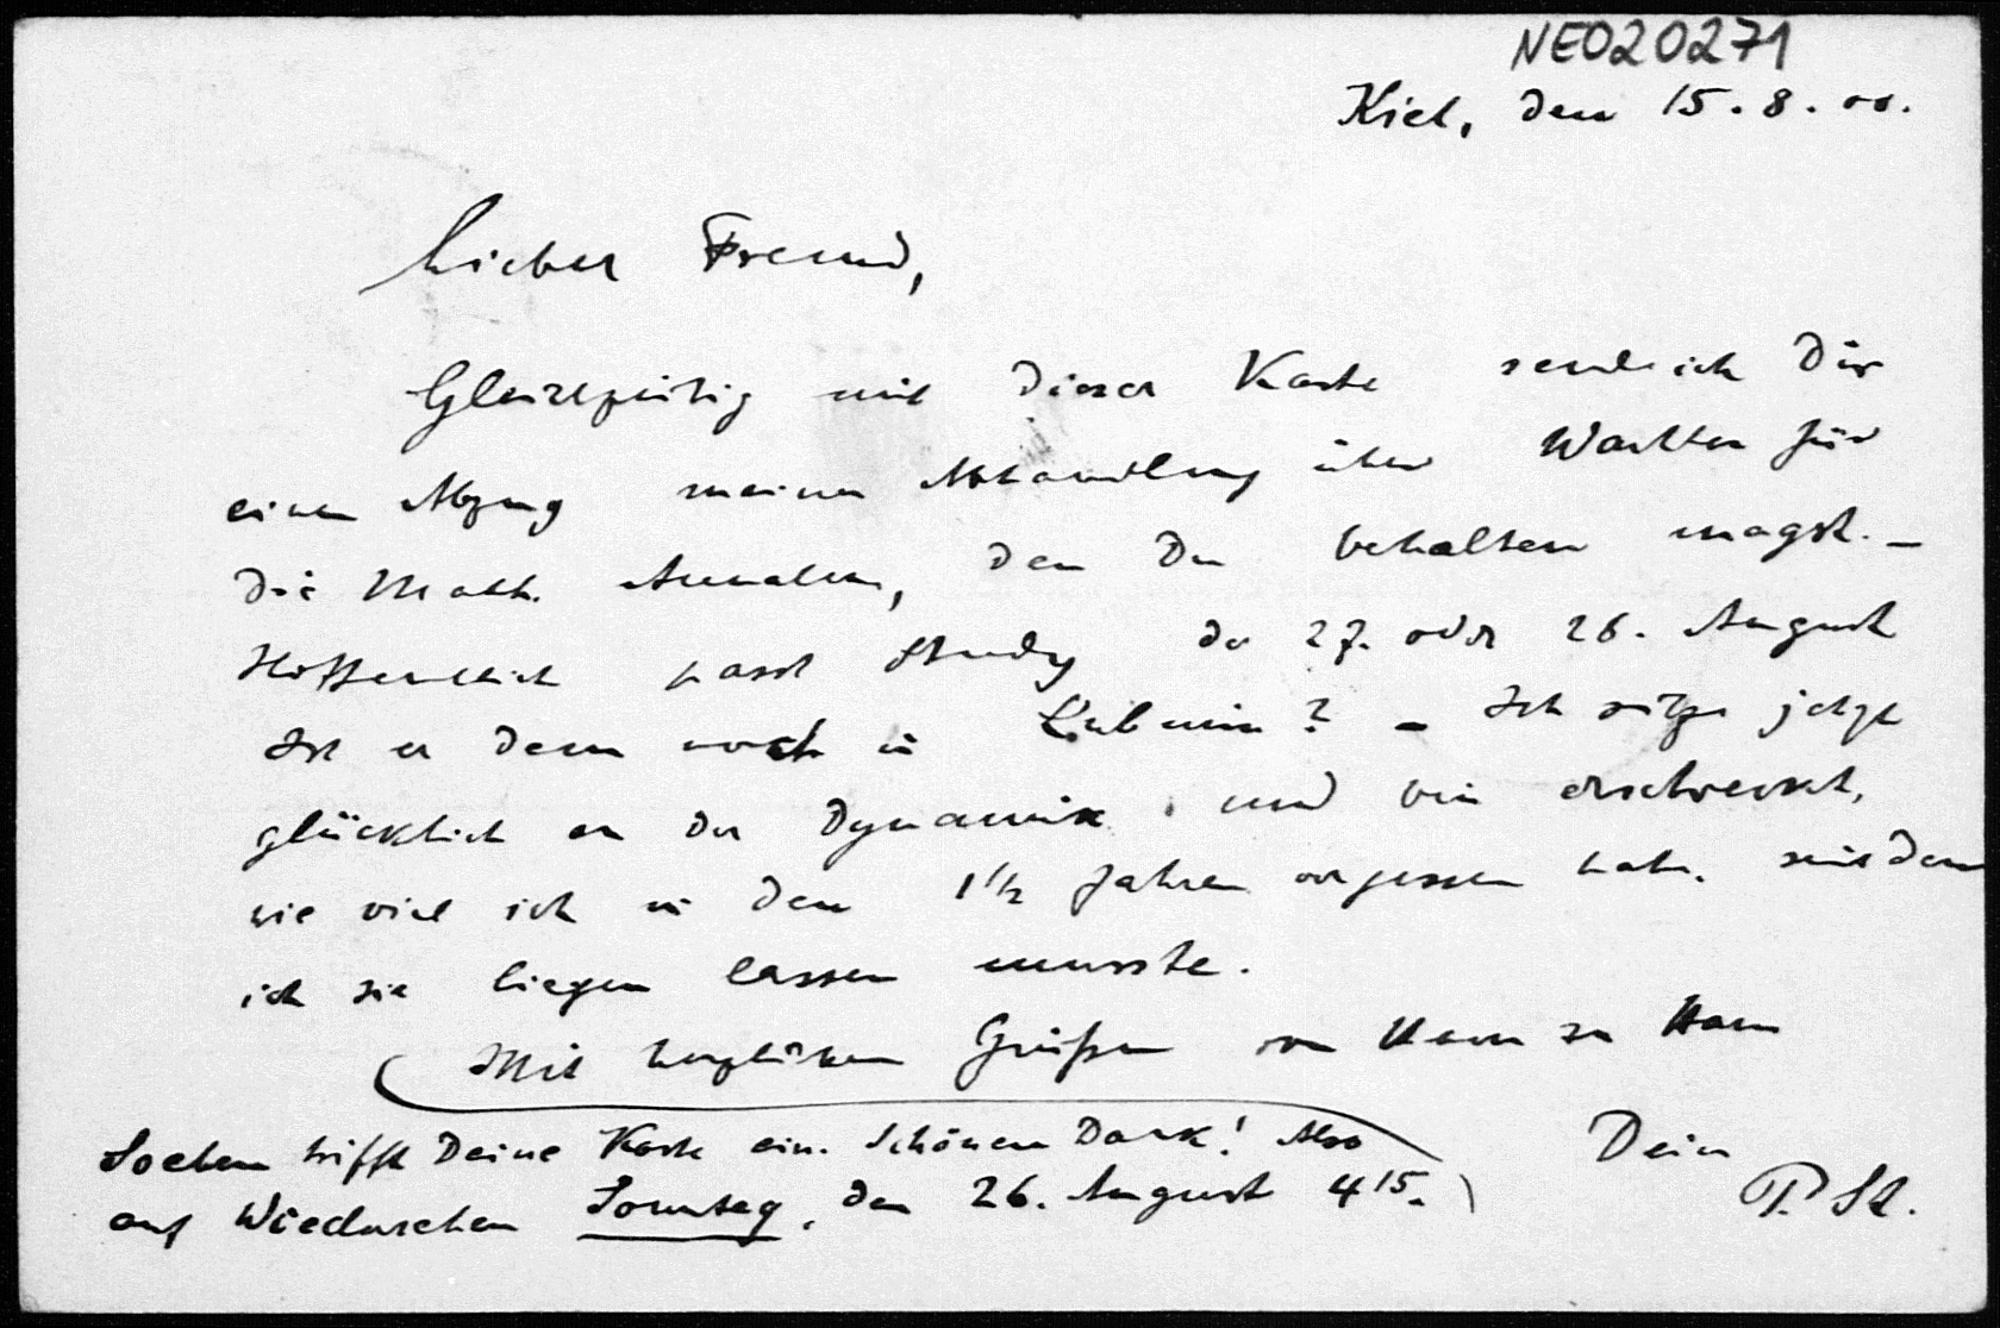 NE020271
Kiel, den 15. 8. 00.
Lieber Freund,
Gleichzeitig mit dieser Karte sende ich Dir
einen Abzug meiner Abhandlung über Wachten für
die Math. Annalen, den Du behalten magst. –
Hoffentlich passt Study der 27. oder 26. August
Ist er denn noch in Lubmin? – Ich sitze jetzt
glücklich an der Dynamik und bin erschreckt,
wie viel ich in den 1½ Jahren vergessen habe, seitdem
ich sie liegen lassen musste.
Mit herzlichen Grüßen von Haus zu Haus
Dein
P. St.
Soeben trifft Deine Karte ein. Schönen Dank! Also
auf Wiedersehen Sonntag, den 26. August 4 15.